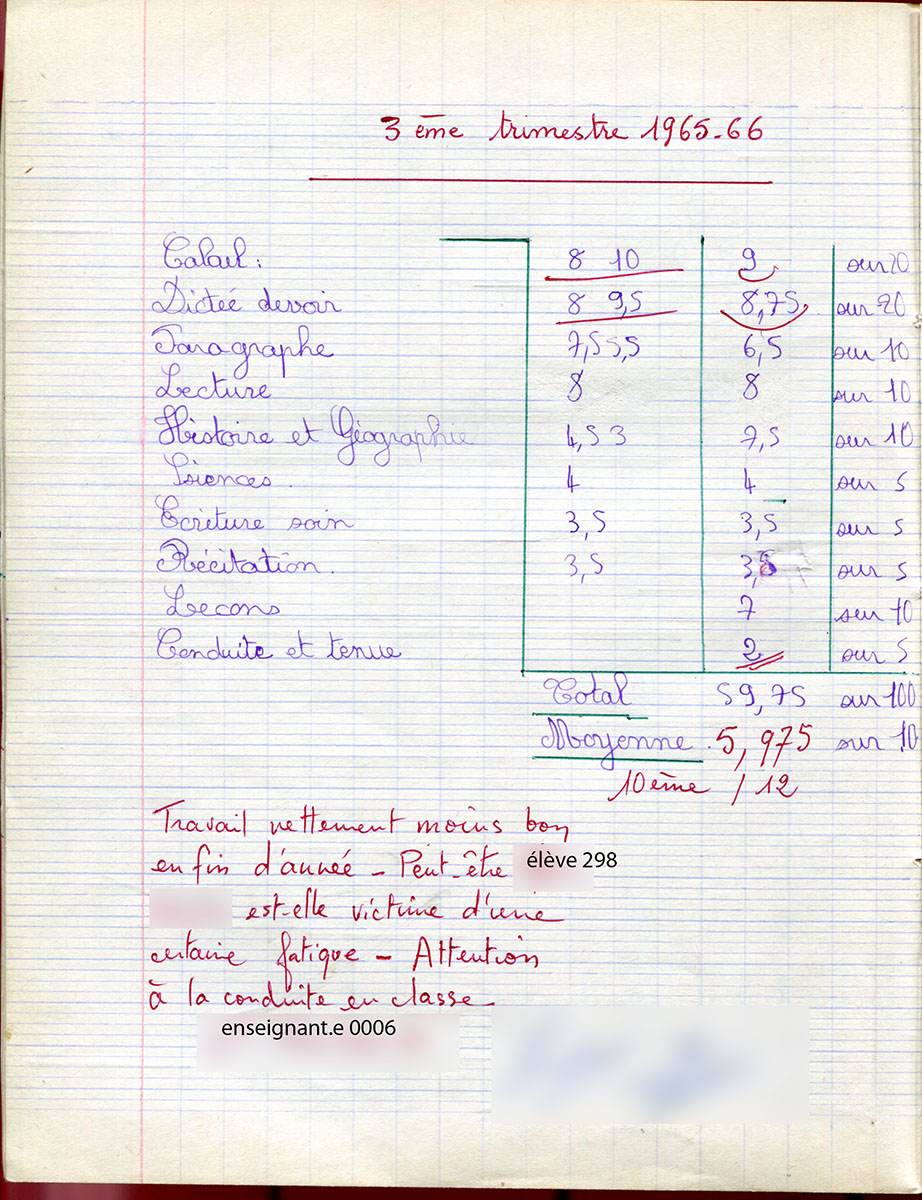 3ème trimestre 1965-66
Calcul : 8 10 9 sur 20
Dictée devoir 8 9,5 8,75 sur 20
Paragraphe 7,5 5,5 6,5 sur 10
Lecture 8 8 sur 10
Histoire et Géographie 4,5 3 7,5 sur 10
Siences. 4 4 sur 5
Ecriture soin 3,5 3,5 sur 5
Récitation. 3,5 3,5 sur 5
Lecons 7 sur 10
Conduite et tenue 2 sur 5
Total 59,75 sur 100
Moyenne. 5,975 sur 10
10ème / 12
Travail nettement moins bon
en fin d'année - Peut-être élève 298
est-elle victime d'une
certaine fatigue - Attention
à la conduite en classe
enseignant.e 0006